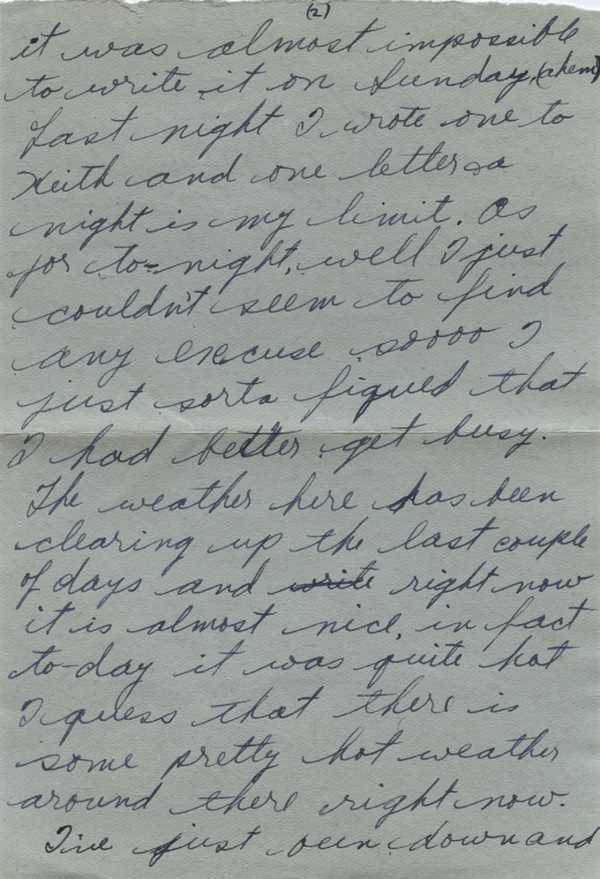 (2)
it was almost impossible
to write it on Sunday, (ahem)
Last night I wrote one to
Keith and one letter a
night is my limit. As
for to-night, well I just
couldn't seem to find
any excuse soooo I
just sorta figued that
I had better get busy.
The weather here has been
clearing up the last couple
of days and write right now
it is almost nice, in fact
to-day it was quite hot
I guess that there is
some pretty hot weather
around there right now.
I've just been down and